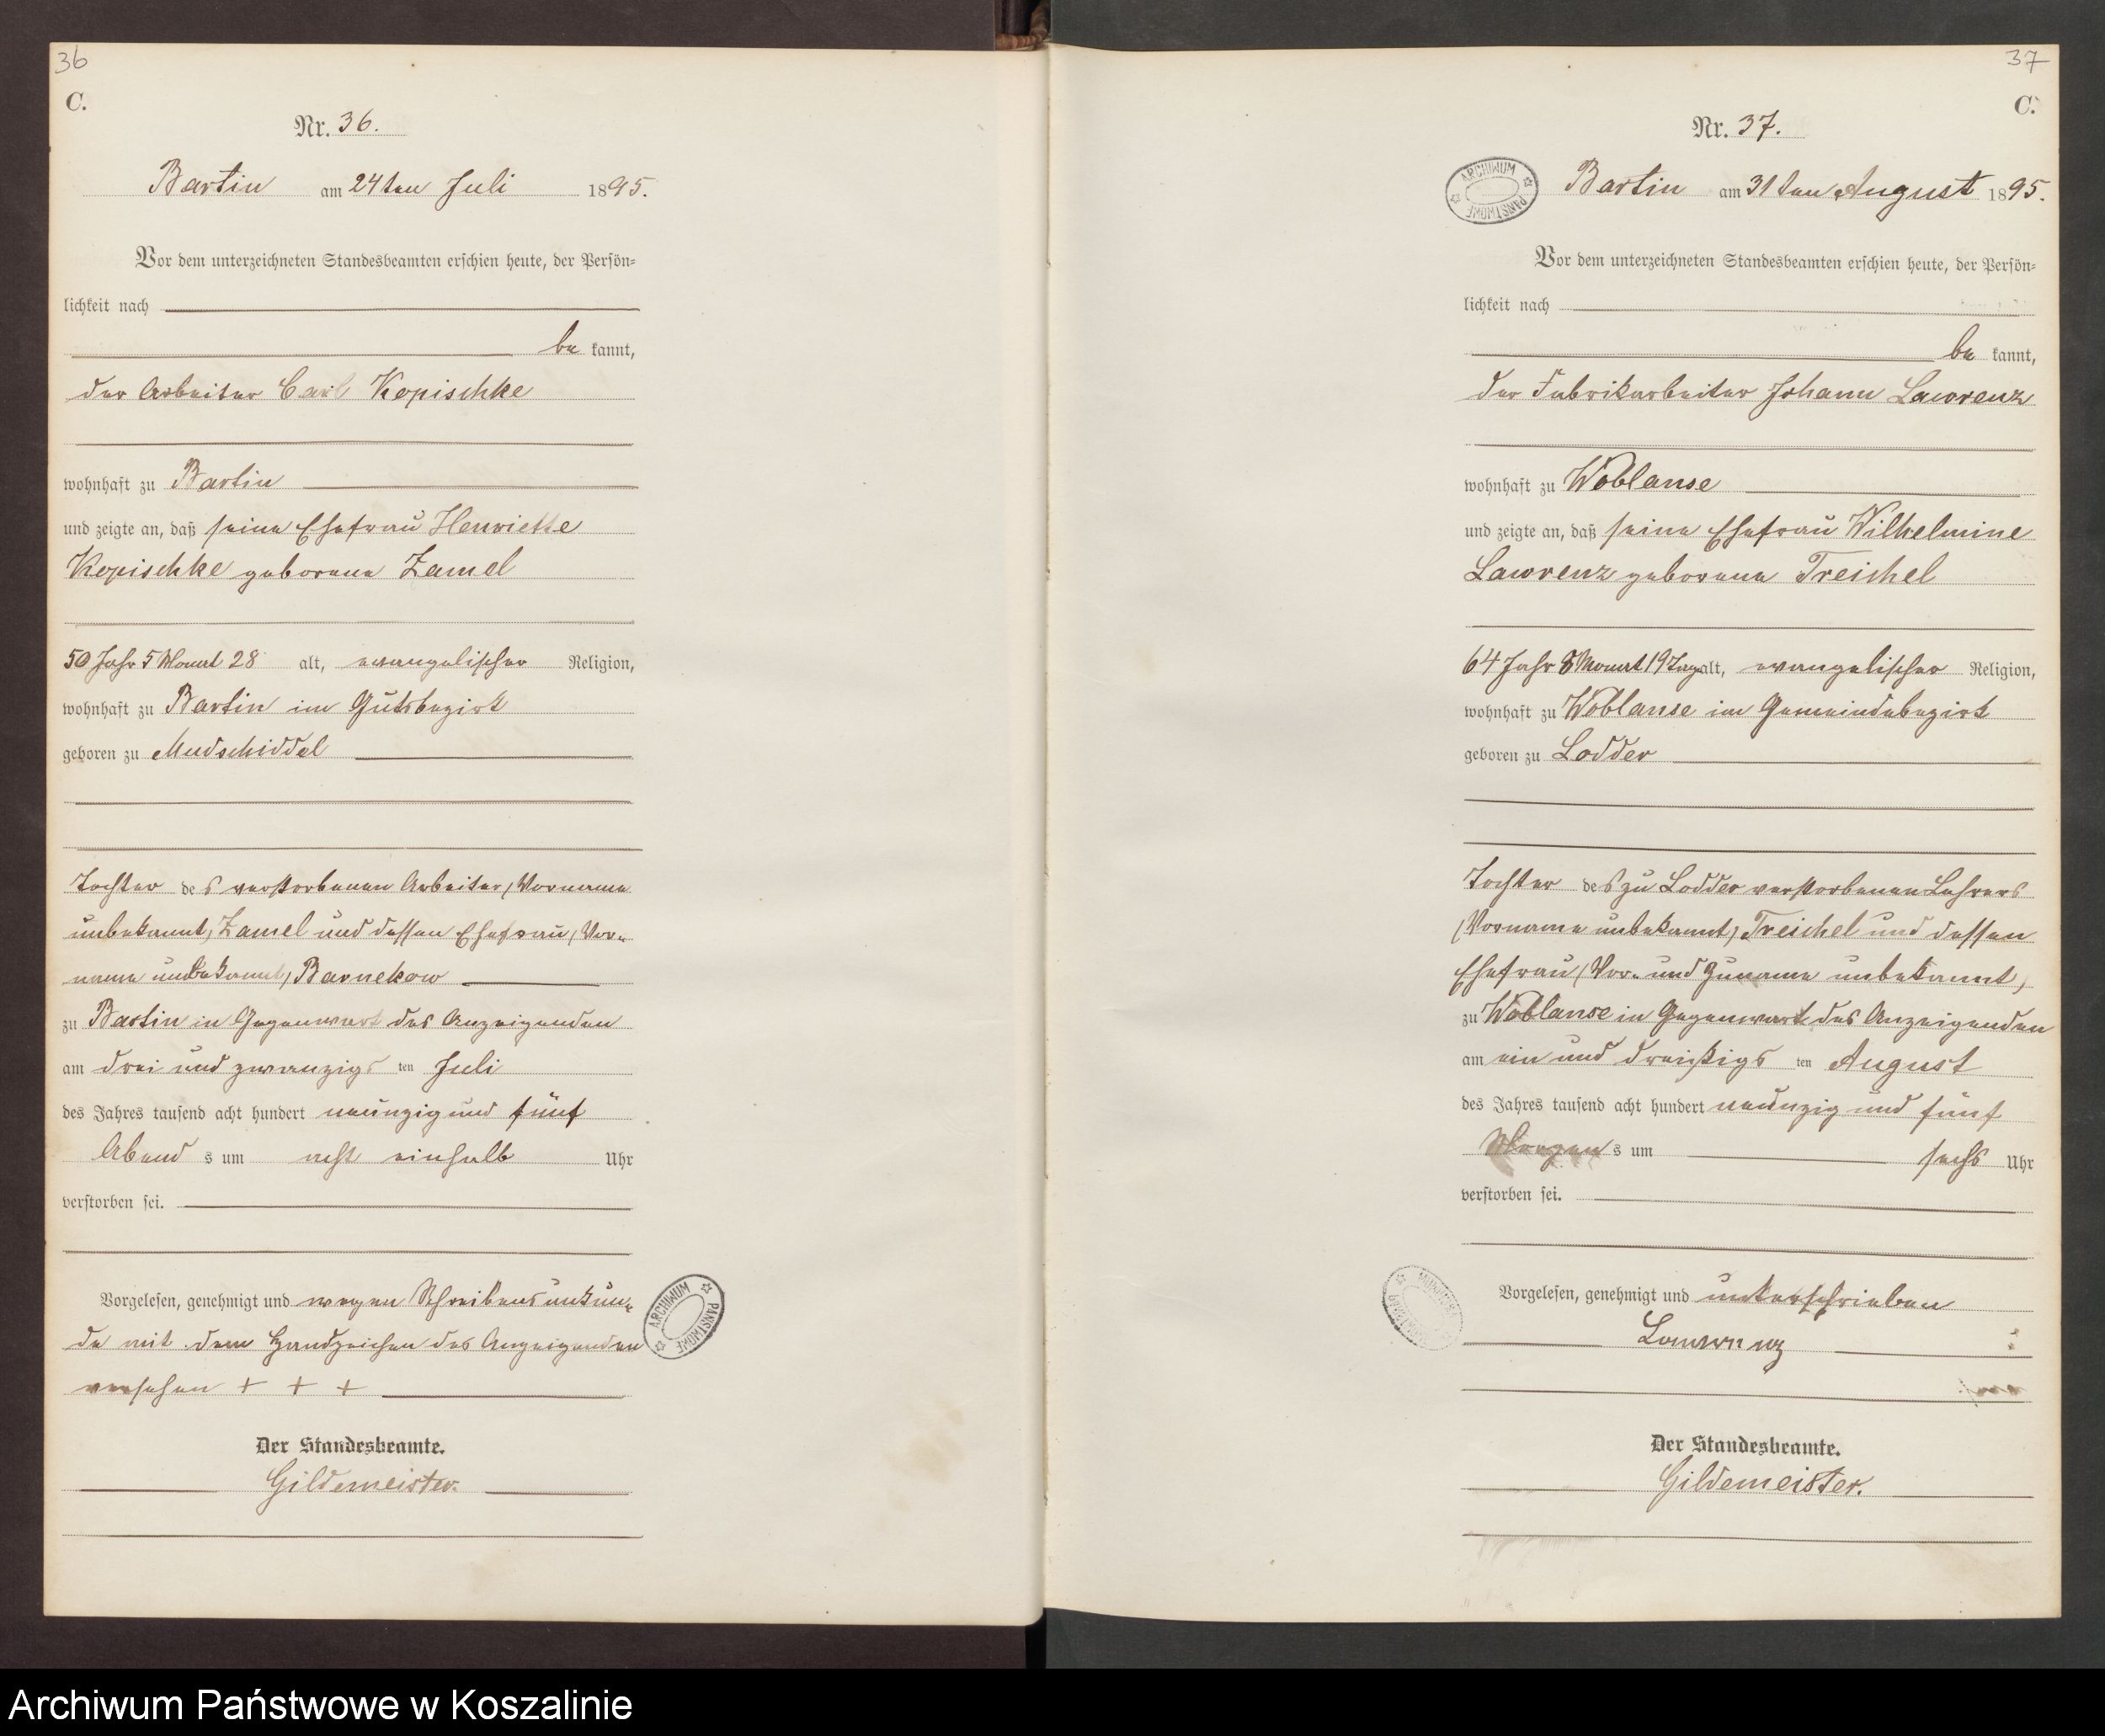 36
C.
Nr. 36.
Bartin am 24ten Juli 1895.
Vor dem unterzeichneten Standesbeamten erschien heute, der Persön-
lichkeit nach
be kannt,
der Arbeiter Carl Kopischke
wohnhaft zu Bartin
und zeigte an, daß seine Ehefrau Henriette
Kopischke geborene Zamel
50 Jahr 5 Monat 28 alt, evangelischer Religion,
wohnhaft zu Bartin im Gutsbezirk
geboren zu Mudschiddel
Tochter des verstorbenen Arbeiter, (Vorname
unbekannt) Zamel und dessen Ehefrau, (Vor-
name unbekannt) Barnekow
zu Bartin in Gegenwart des Anzeigenden
am drei und zwanzigsten Juli
des Jahres tausend acht hundert neunzig und fünf
Abend s um acht einhalb Uhr
verstorben sei.
Vorgelesen, genehmigt und wegen Schreibensunkun-
de mit dem Handzeichen des Anzeigenden
versehen + + +
Der Standesbeamte.
Gildemeister.
ARCHIWUM PAŃSTWOWE
37
C.
Nr. 37.
ARCHIWUM PAŃSTWOWE
Bartin am 31ten August 1895.
Vor dem unterzeichneten Standesbeamten erschien heute, der Persön-
lichkeit nach
be kannt,
der Fabrikarbeiter Johann Lawrenz
wohnhaft zu Woblanse
und zeigte an, daß seine Ehefrau Wilhelmine
Lawrenz geborene Treichel
64 Jahr 8 Monat 19 Tag alt, evangelischer Religion,
wohnhaft zu Woblanse im Gemeindebezirk
geboren zu Lodder
Tochter des zu Lodder verstorbenen Lehrers
(Vorname unbekannt) Treichel und dessen
Ehefrau (Vor- und Zuname unbekannt)
zu Woblanse in Gegenwart des Anzeigenden
am ein und dreißigsten August
des Jahres tausend acht hundert neunzig und fünf
Morgen s um sechs Uhr
verstorben sei.
Vorgelesen, genehmigt und unterschrieben
Der Standesbeamte.
Gildemeister.
ARCHIWUM PAŃSTWOWE
Archiwum Państwowe w Koszalinie